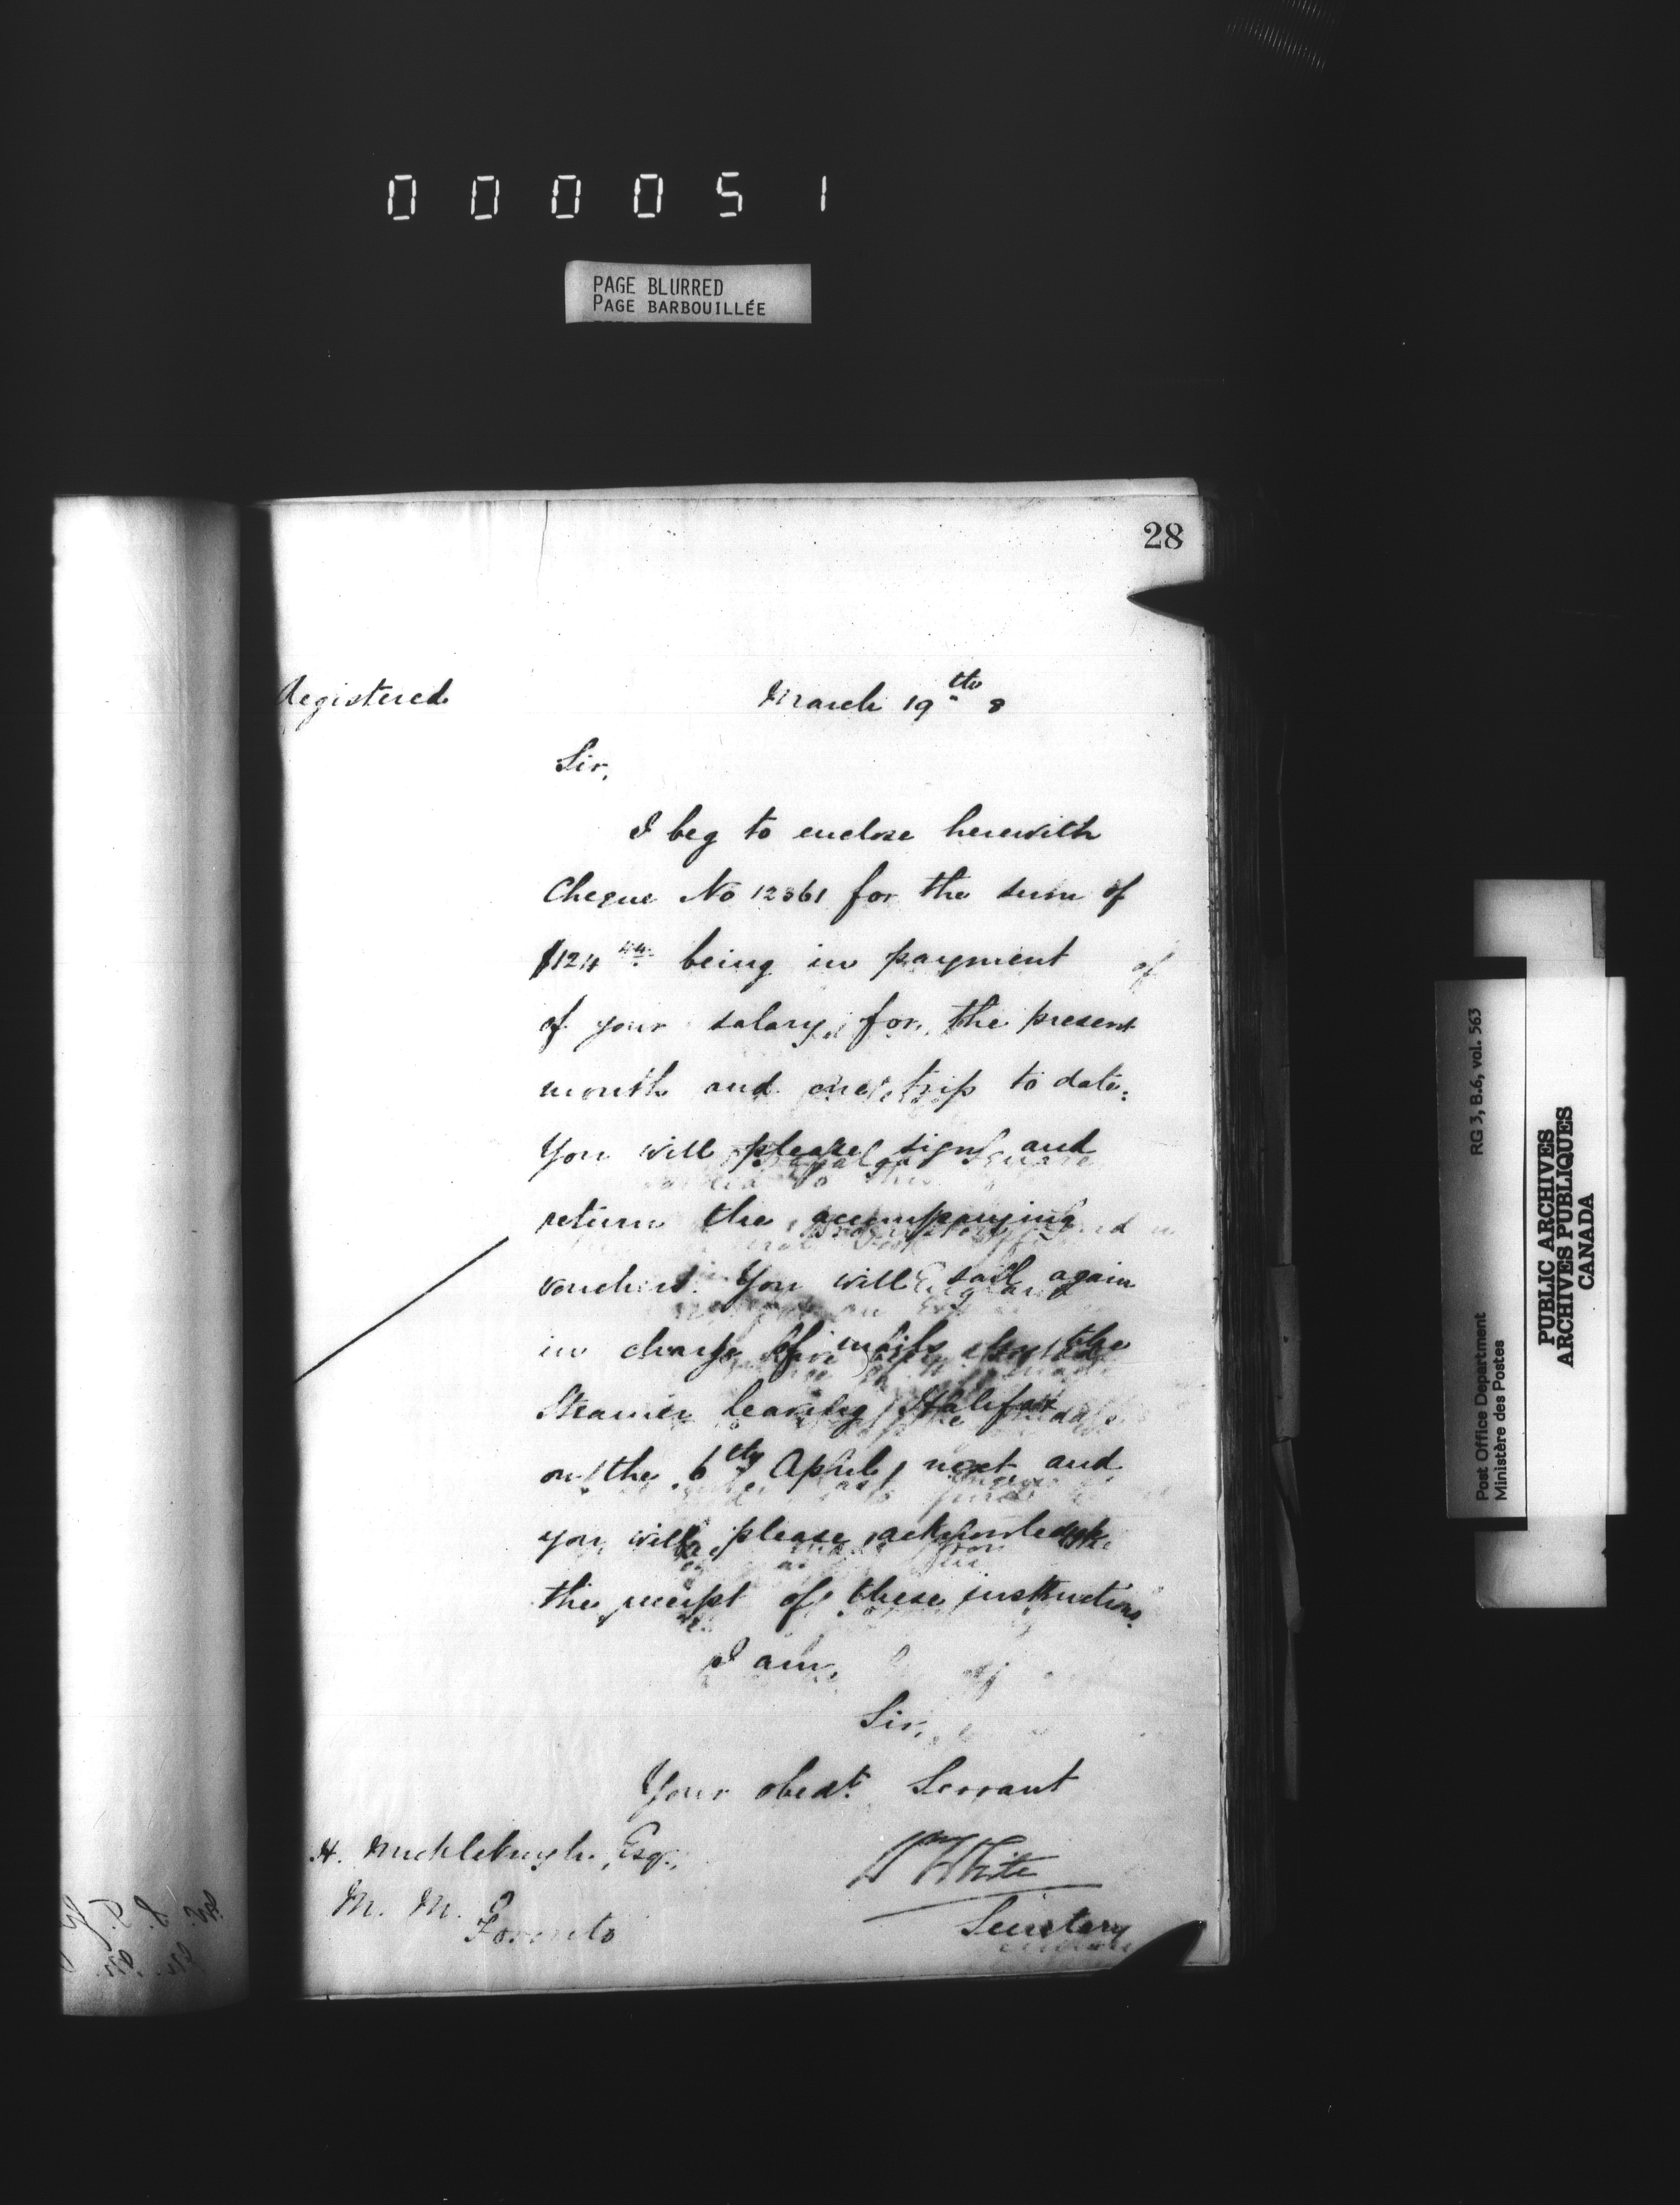 000051
PAGE BLURRED
PAGE BARBOUILLÉE
28
Registered
March 19th 8
Sir,
I beg to enclose herewith
Cheque No 12361 for the sum of
$124 44 being in payment of
of your salary for the present
month and one trip to date.
You will please sign and
return the accompanying
vouchers. You will sail again
in charge of mails by the
Steamer leaving Halifax
on the 6th April next and
you will please acknowledge
the receipt of these instructions
I am,
Sir,
Your obedt. Servant
Wm White
Secretary
H. Esq.,
M. M. C
Toronto
RG 3, B.6, vol. 563
Post Office Department
Ministère des Postes
PUBLIC ARCHIVES
ARCHIVES PUBLIQUES
CANADA